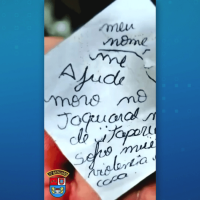 meu
nome
me
Ajude
moro no
Jaguará
de itaperu
Sofro mui
violencia
casa